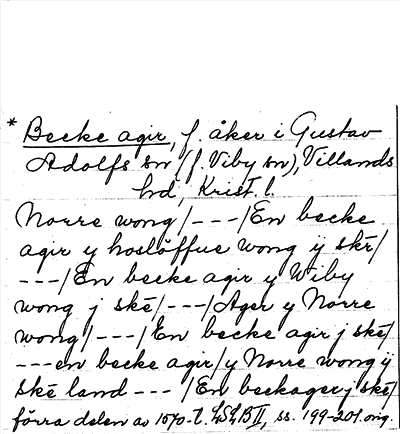 * Becke agir, f. åker i Gustav
Adolfs sn (f. Viby sn), Villands
hd, Krist. l.
Norre wong/---/En becke
agir y hoslöffue wong ÿ skē/
---/En becke agir y Wiby
wong j skē/---/Ager y Norre
wong/---/En becke agir j skē/
---en becke agir/y Norre wong ÿ
skē land ---/En beckager j skē/
förra delen av 1570-t. LSLB II, ss. 199-201. orig.